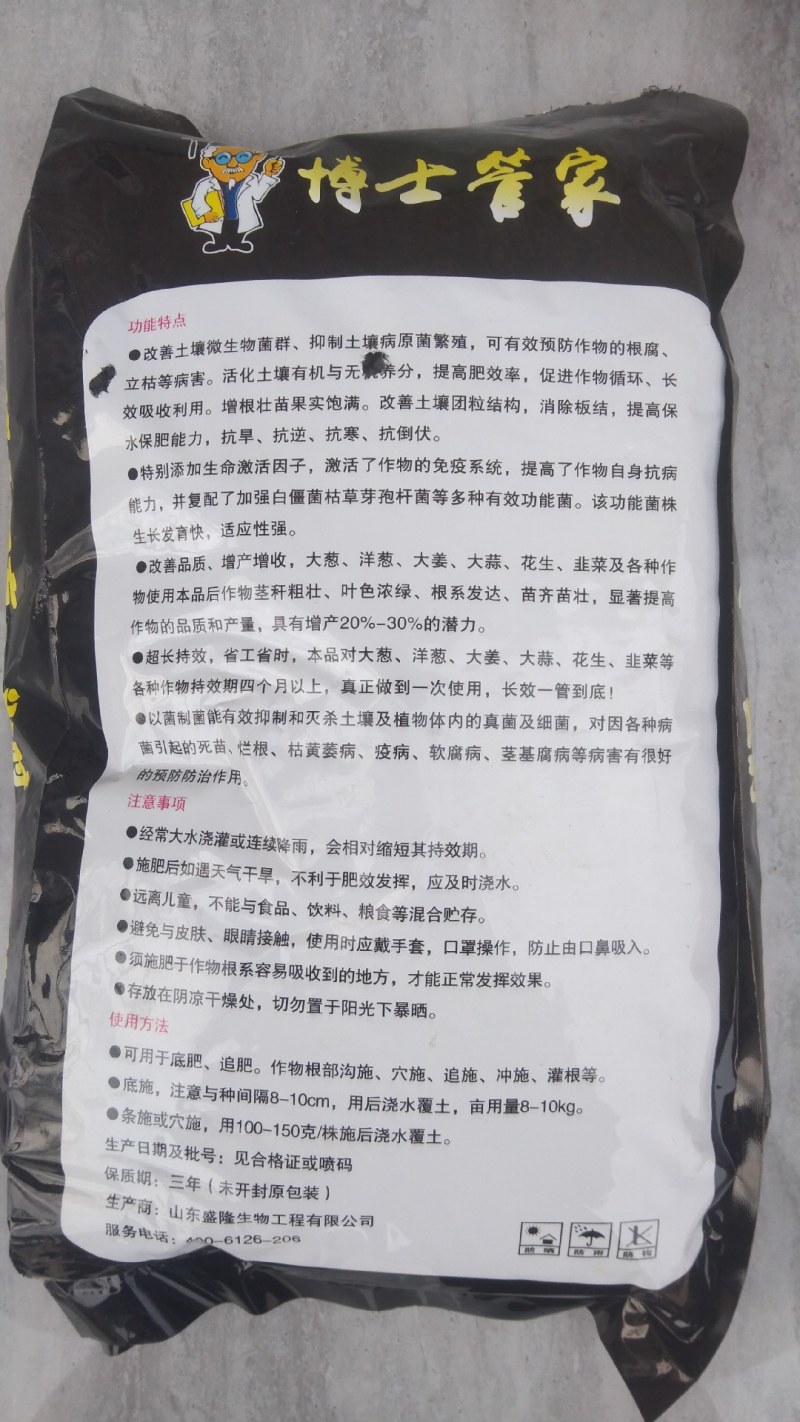 博士管家
功能特点
●改善土壤微生物菌群、抑制土壤病原菌繁殖，可有效预防作物的根腐、
立枯等病害。活化土壤有机与无机养分，提高肥效率，促进作物循环、长
效吸收利用。增根壮苗果实饱满。改善土壤团粒结构，消除板结，提高保
水保肥能力，抗旱、抗逆、抗寒、抗倒伏。
●特别添加生命激活因子，激活了作物的免疫系统，提高了作物自身抗病
能力，并复配了加强白僵菌枯草芽孢杆菌等多种有效功能菌。该功能菌株
生长发育快，适应性强。
●改善品质、增产增收，大葱、洋葱、大姜、大蒜、花生、韭菜及各种作
物使用本品后作物茎秆粗壮、叶色浓绿、根系发达、苗齐苗壮，显著提高
作物的品质和产量，具有增产20%-30%的潜力。
●超长持效，省工省时，本品对大葱、洋葱、大姜、大蒜、花生、韭菜等
各种作物持效期四个月以上，真正做到一次使用，长效一管到底！
●以菌制菌能有效抑制和灭杀土壤及植物体内的真菌及细菌，对因各种病
菌引起的死苗、烂根、枯黄萎病、疫病、软腐病、茎基腐病等病害有很好
的预防防治作用。
注意事项
●经常大水浇灌或连续降雨，会相对缩短其持效期。
●施肥后如遇天气干旱，不利于肥效发挥，应及时浇水。
●远离儿童，不能与食品、饮料、粮食等混合贮存。
●避免与皮肤、眼睛接触，使用时应戴手套，口罩操作，防止由口鼻吸入。
●须施肥于作物根系容易吸收到的地方，才能正常发挥效果。
●存放在阴凉干燥处，切勿置于阳光下暴晒。
使用方法
●可用于底肥、追肥。作物根部沟施、穴施、追施、冲施、灌根等。
●底施，注意与种间隔8-10cm，用后浇水覆土，亩用量8-10kg。
●条施或穴施，用100-150克/株施后浇水覆土。
生产日期及批号：见合格证或喷码
保质期：三年（未开封原包装）
生产商：山东盛隆生物工程有限公司
服务电话：400-6126-206
防晒 防雨